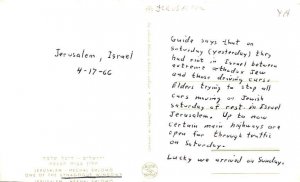 Jerusalem, Israel
4-17-66
Guide says that on
Saturday (yesterday) they
had riot in Israel between
extreme orthodox Jew
and those driving cars.
Elders trying to stop all
cars moving on Jewish
Saturday at rest in Israel
Jerusalem. Up to now
certain main highways are
open for through traffic
on Saturday.
Lucky we arrived on Sunday.